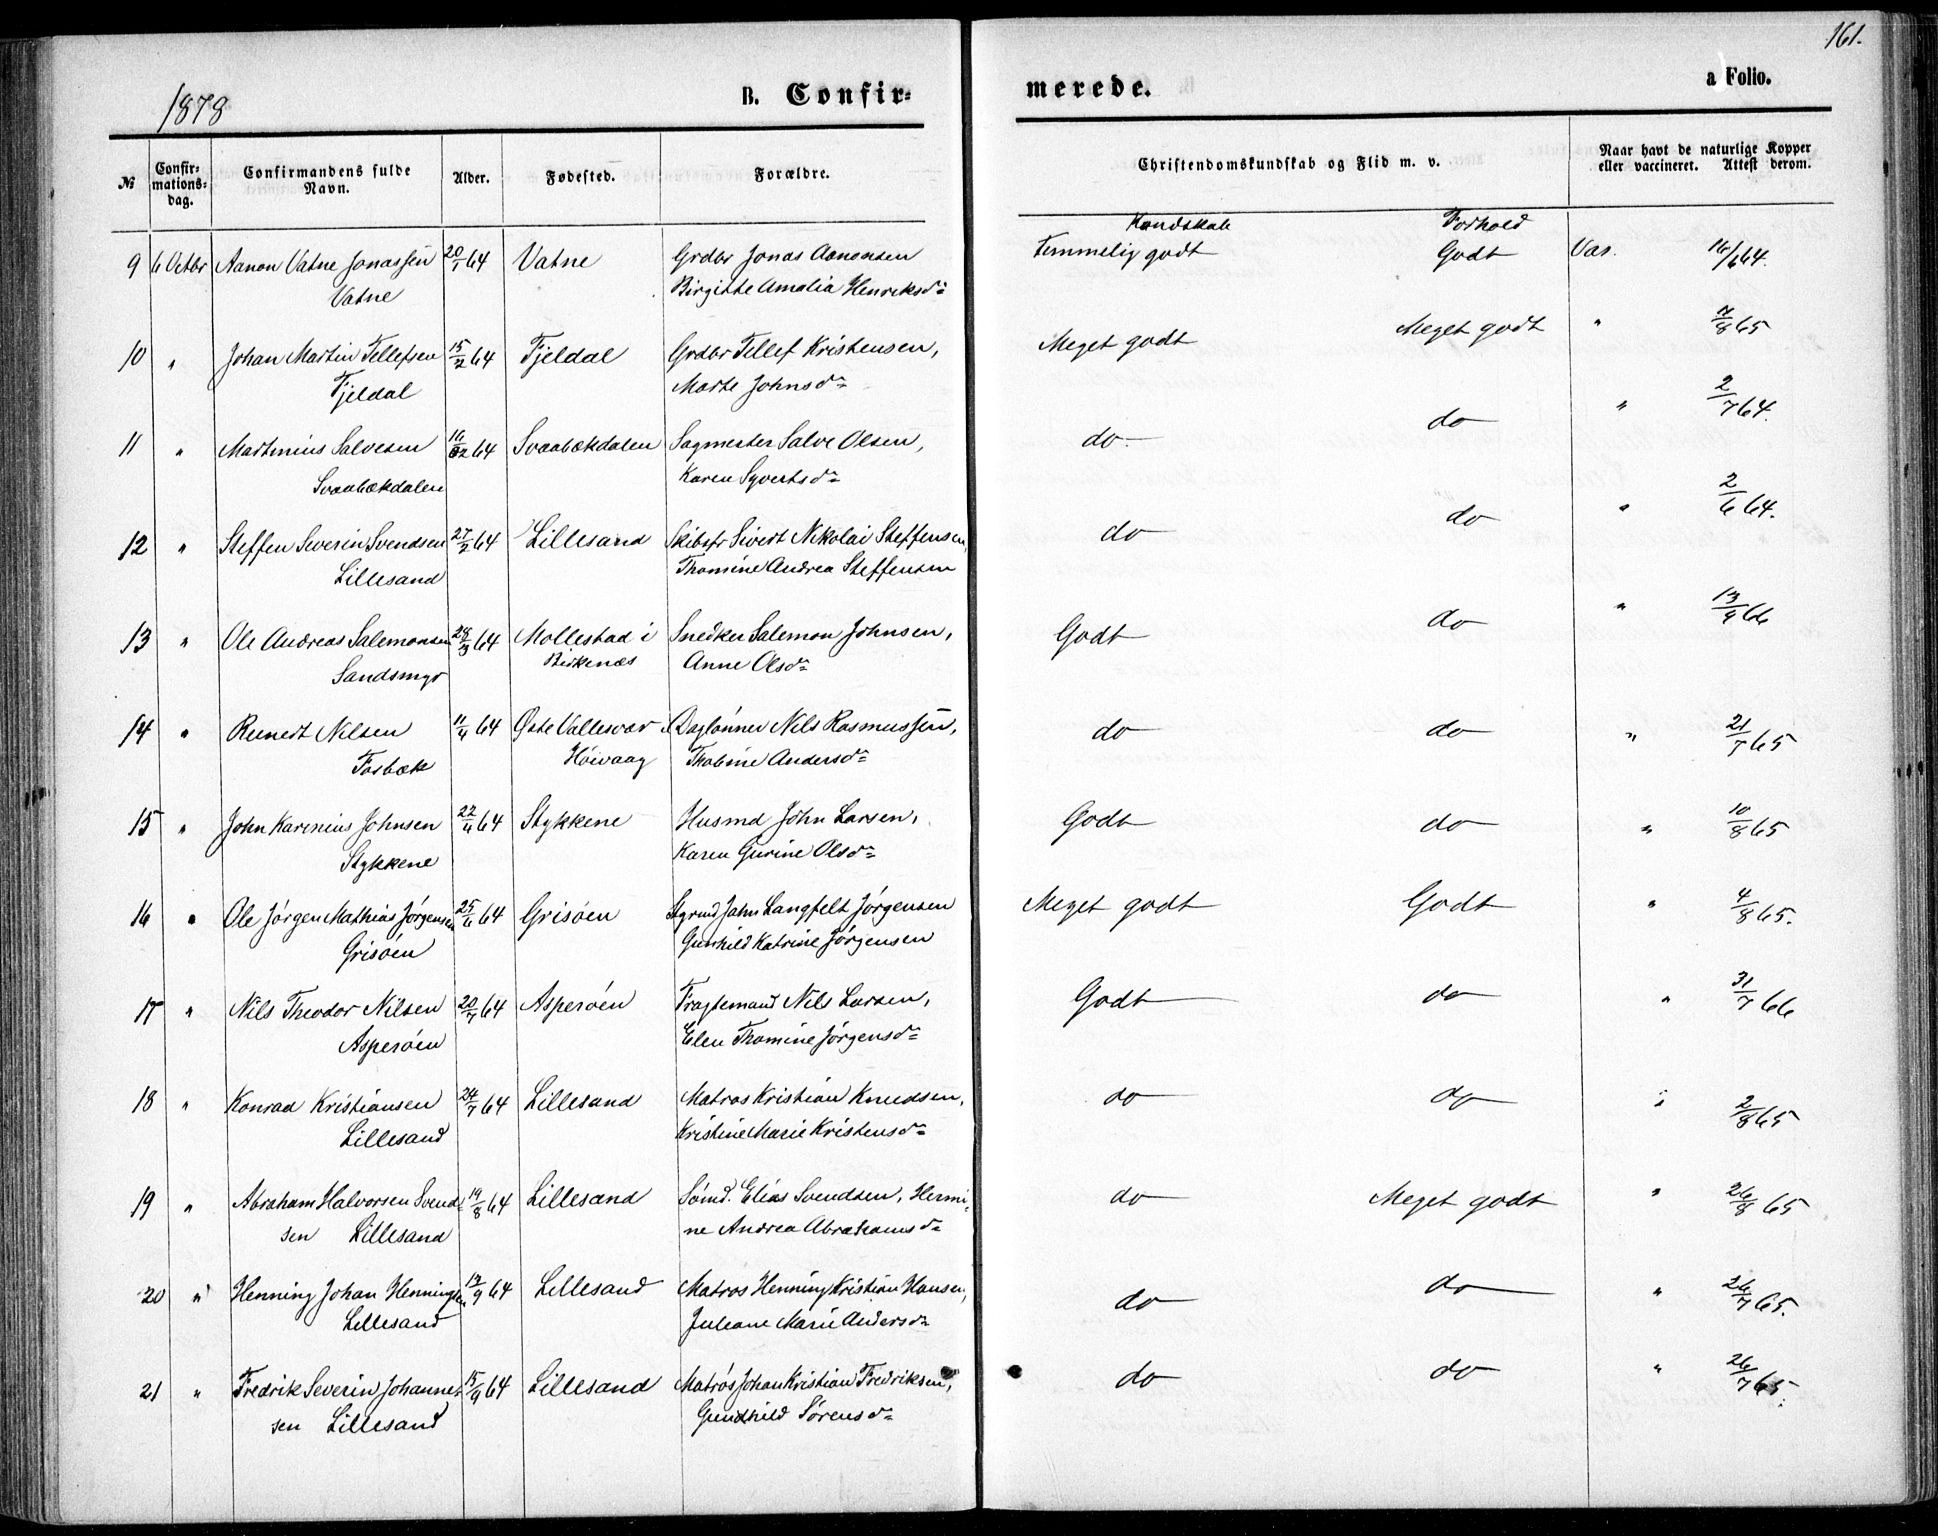 161.
1878
B. Confir-
merede.
a Folio.
№
Confir-
mations-
dag.
Confirmandens fulde
Navn.
Alder.
Fødested.
Forældre.
Christendomskundskab og Flid m. v.
Naar havt de naturlige Kopper
eller vaccineret. Attest derom.
Kundskab Forhold
9 6 Octbr Aanon Vatne Jonassen 20/1 64 Vatne Grdbr Jonas Aanonsen Temmelig godt Godt Vac. 16/6 64.
Vatne Birgitte Amalia Henriksd~
10 " Johan Martin Tellefsen 15/2 64 Fjeldal Grdbr Tellef Kristensen, Meget godt Meget godt " 7/8 65
Fjeldal Marte Johnsd~
11 " Martinius Salvesen 16/2 64 Svaabækdalen Sagmester Salve Olsen, do do " 2/7 64.
Svaabækdalen Karen Syvertsd~
12 " Steffen Severin Svendsen 27/2 64 Lillesand Skibsfr Sivert Nikolai Steffensen, do do " 2/6 64.
Lillesand Thomine Andrea Steffensen
13 " Ole Andreas Salemonsen 28/3 64 Mollestad i Snedker Salemon Johnsen, Godt do " 13/9 66
Sandsmyr Birkenæs Anne Olsd~
14 " Reinert Nilsen 11/4 64 Øste Vallesvær i Daglønner Nils Rasmussen, do do " 21/7 65
Fosbæk Høivaag Thobine Andersd~
15 " John Karenius Johnsen 22/4 64 Stykkene Husmd John Larsen, Godt do " 10/8 65
Stykkene Karen Gurine Olsd~
16 " Ole Jørgen Mathias Jørgensen 25/6 64 Grisøen Styrmd Jahn Langfelt Jørgensen Meget godt Godt " 4/8 65.
Grisøen Gunhild Katrine Jørgensen
17 " Nils Theodor Nilsen 20/7 64 Asperøen Fragtemand Nils Larsen, Godt do " 31/7 66
Asperøen Elen Thomine Jørgensd~
18 " Konrad Kristiansen 24/7 64 Lillesand Matros Kristian Knudsen, do do " 2/8 65
Lillesand Kristine Marie Kristensd~
19 " Abraham Halvorsen Svend- 19/8 64 Lillesand Sømd. Elias Svendsen, Hermi- do Meget godt " 26/8 65
sen Lillesand ne Andrea Abrahamsd~
20 " Henning Johan Henningsen 12/9 64 Lillesand Matros Henning Kristian Hansen, do do " 26/7 65.
Lillesand Juliane Marie Andersd~
21 " Fredrik Severin Johanne- 15/9 64 Lillesand Matros Johan Kristian Fredriksen, do do " 26/7 65.
sen Lillesand Gundhild Sørensd~